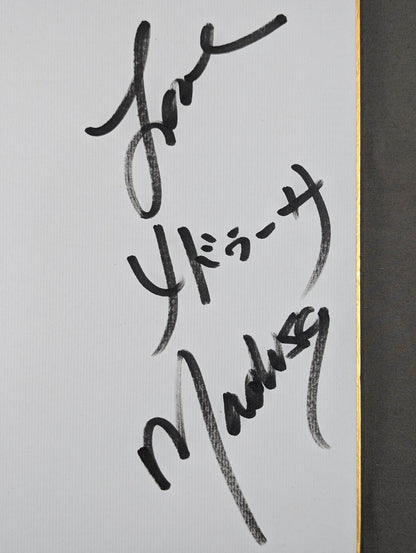 Love
メドゥーサ
Madusa